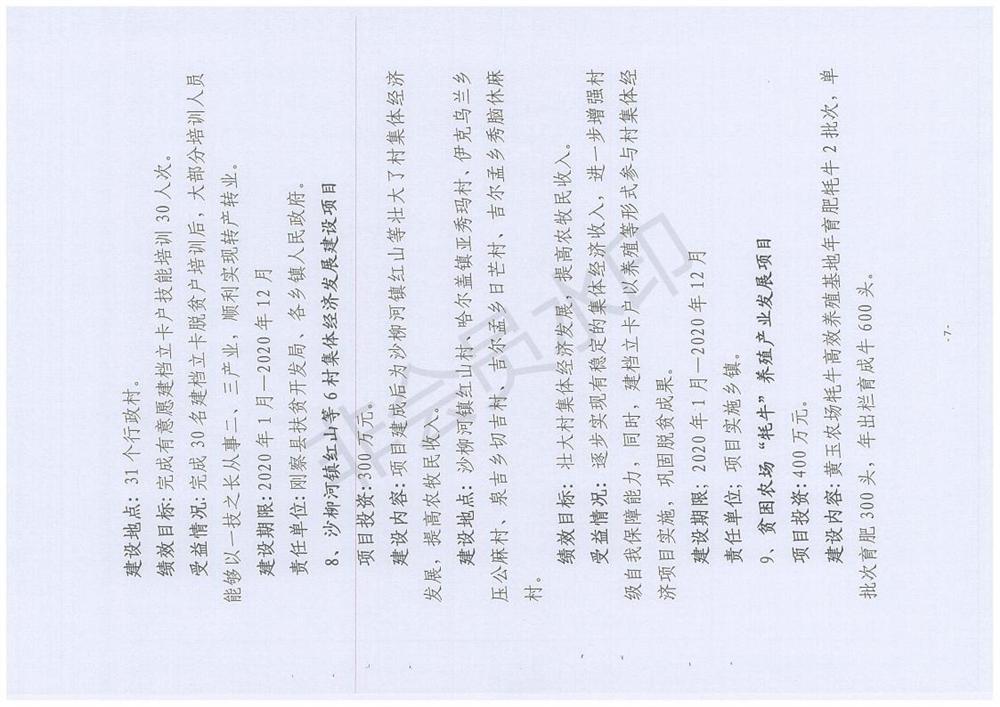 建设地点：31个行政村。
绩效目标:完成有意愿建档立卡户技能培训30人次。
受益情况:完成30名建档立卡脱贫户培训后，大部分培训人员
能够以一技之长从事二、三产业，顺利实现转产转业。
建设期限:2020年1月—2020年12月
责任单位:刚察县扶贫开发局、各乡镇人民政府。
8、沙柳河镇红山等6村集体经济发展建设项目
项目投资:300万元。
建设内容:项目建成后为沙柳河镇红山等壮大了村集体经济
发展，提高农牧民收入。
建设地点：沙柳河镇红山村、哈尔盖镇亚秀玛村、伊克乌兰乡
压公麻村、泉吉乡切吉村、吉尔孟乡日芒村、吉尔孟乡秀脑休麻
村。
绩效目标：壮大村集体经济发展，提高农牧民收入。
受益情况：逐步实现有稳定的集体经济收入，进一步增强村
级自我保障能力，同时，建档立卡户以养殖等形式参与村集体经
济项目实施，巩固脱贫成果。
建设期限；2020年1月—2020年12月
责任单位；项目实施乡镇。
9、贫困农场“牦牛”养殖产业发展项目
项目投资：400万元。
建设内容:黄玉农场牦牛高效养殖基地年育肥牦牛2批次，单
批次育肥300头，年出栏育成牛600头。
-7-
非会员水印